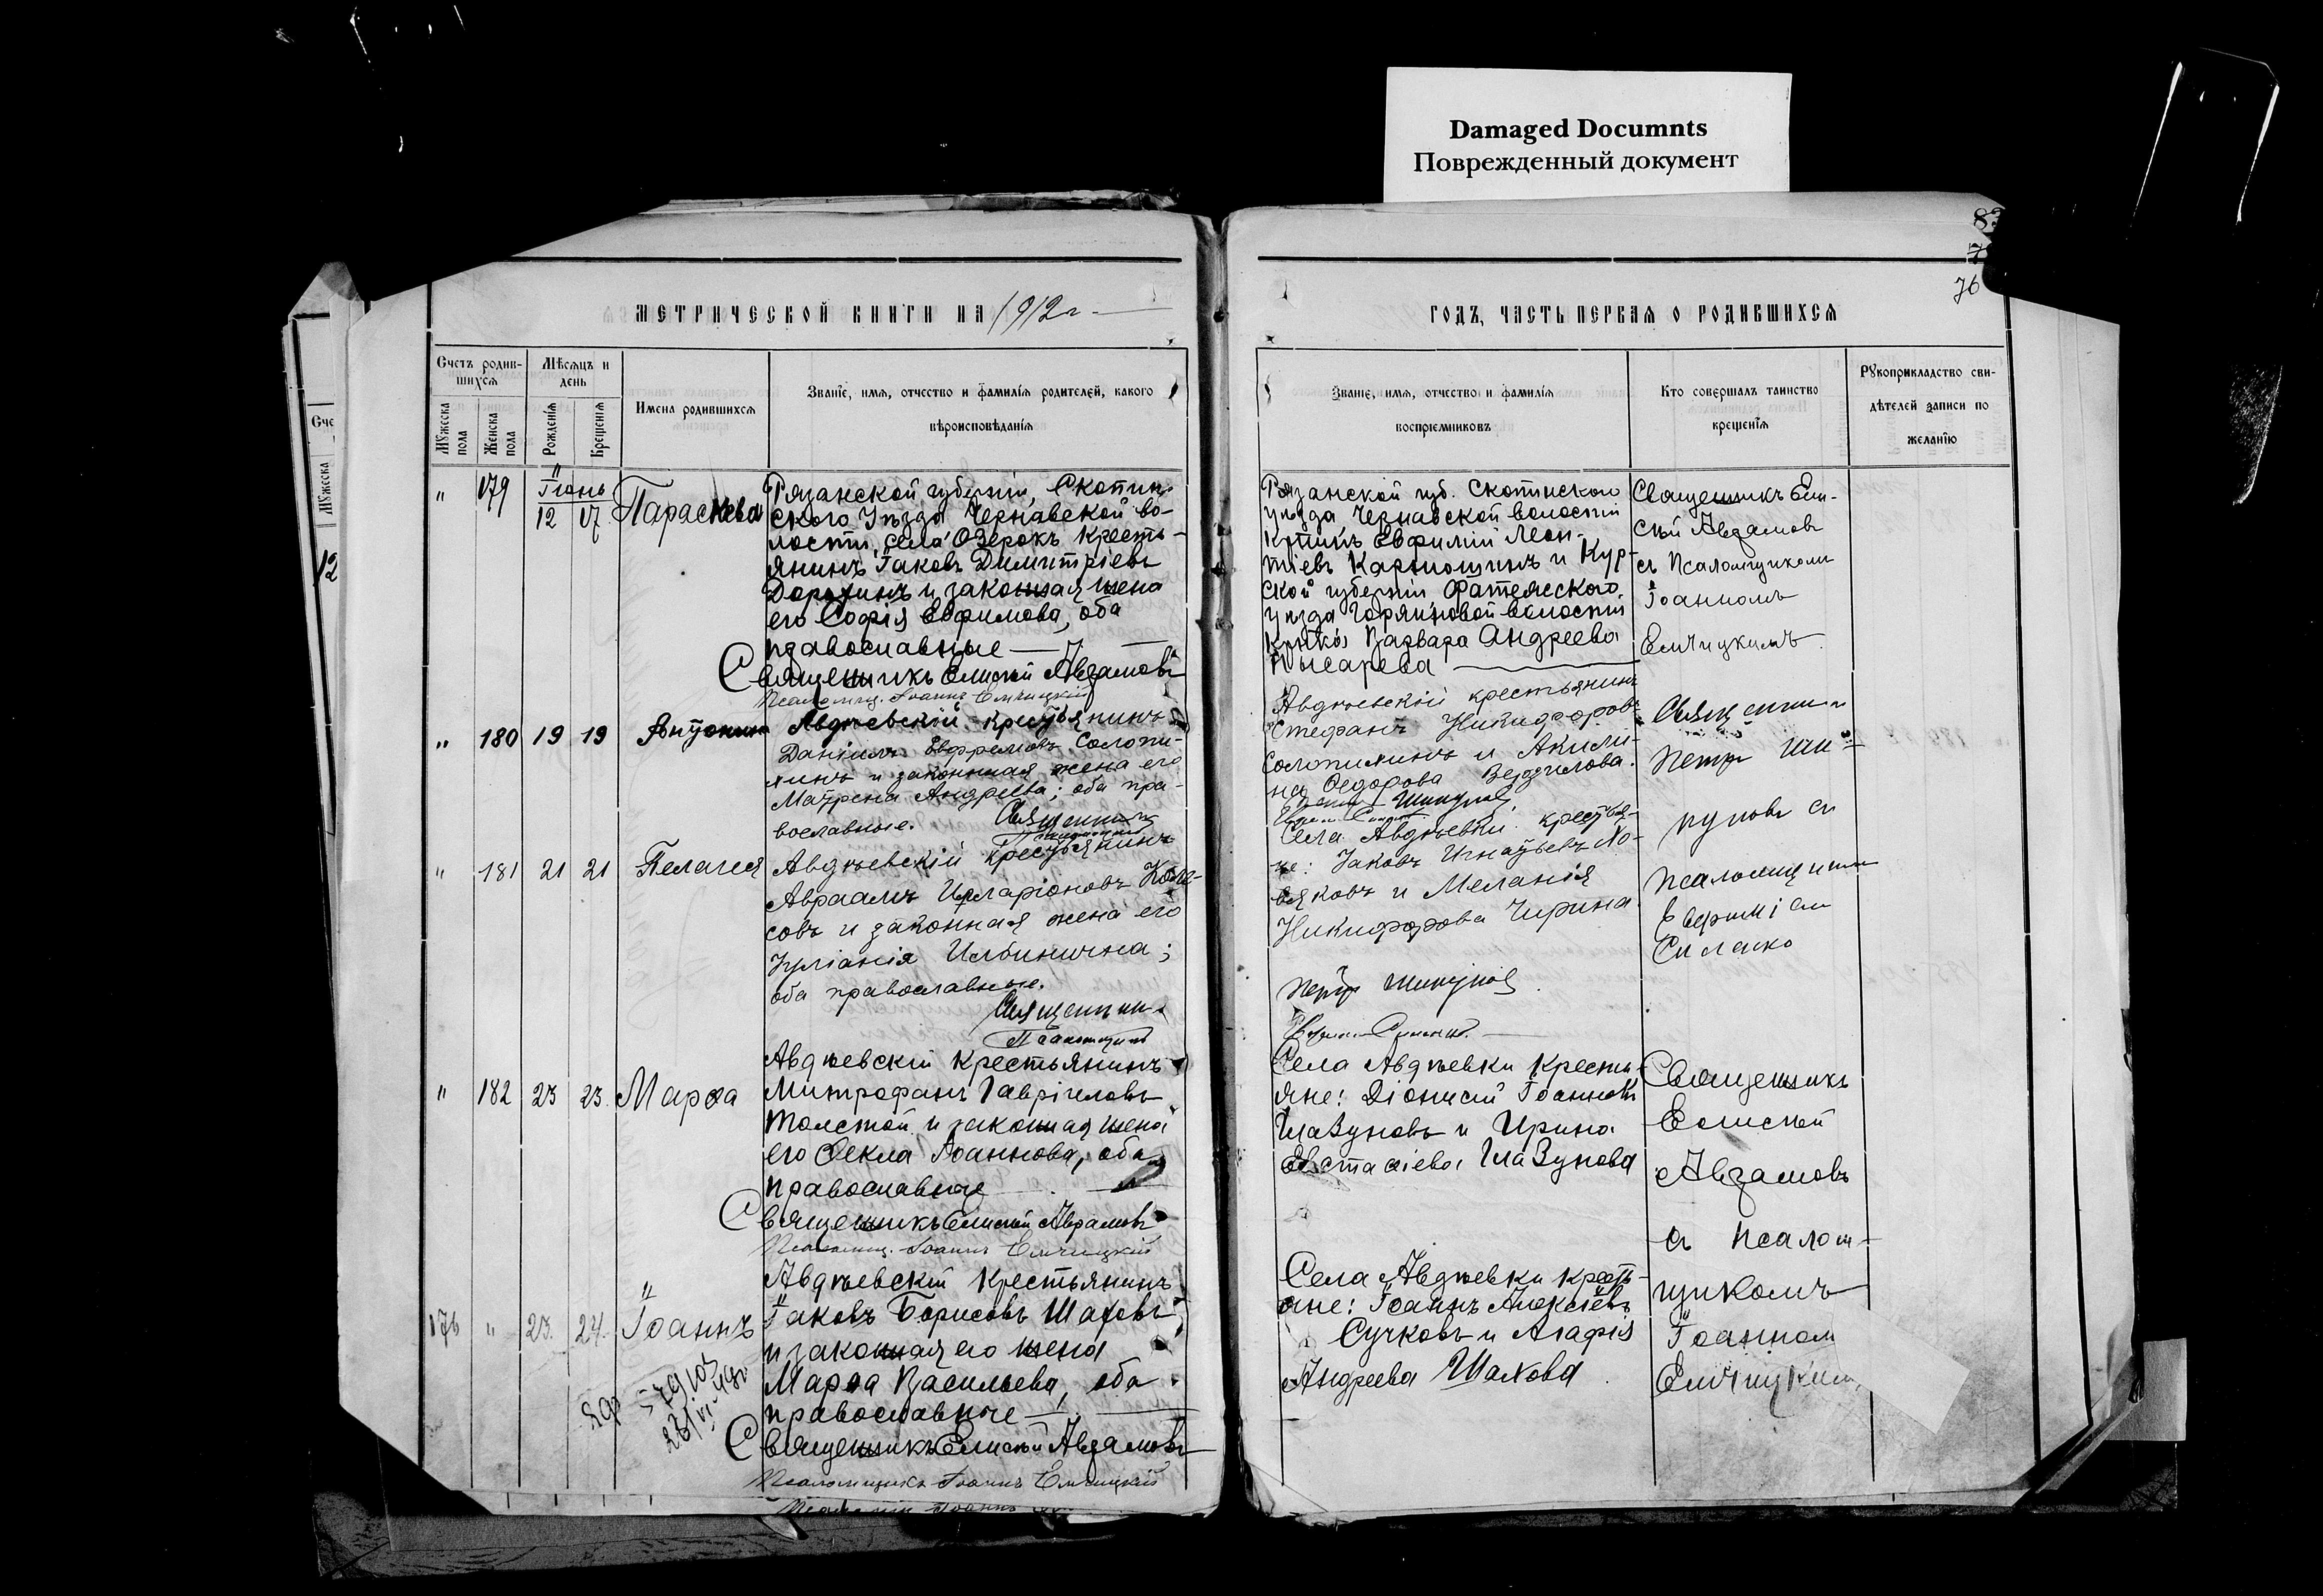 Damaged Documnts
Поврежденный документ
83
76
МЕТРИЧЕСКОЙ КНИГИ НА 1912 г.
ГОДЪ, ЧАСТЬ ПЕРВАЯ О РОДИВШИХСЯ
Счетъ родив-
шихся
Мѣсяцъ и
день
Мужеска
пола
Женска
пола
Рожденія
Крещенія
Имена родившихся
Званіе, имя, отчество и фамилія родителей, какого
вѣроисповѣданія
Званіе, имя, отчество и фамилія
воспріемниковъ
Кто совершалъ таинство
крещенія
Рукоприкладство сви-
дѣтелей записи по
желанію
Сче
Мужеска
12
" 179 Іюнь 12 17 Параскева
Рязанской губерніи, Скопин-
ского Уѣзда Чернавской во-
лости, села Озерокъ кресть-
янинъ Іаковъ Димитріевъ
Дорохинъ и законная жена
его Софія Евфимова, оба
православные
Священникъ Елисей Авдамовъ
Псаломщ. Іоаннъ Емчицкій
Рязанской губ. Скопинского
уѣзда Чернавской волости
кр-нинъ Евфимій Леон-
тіевъ Карпошинъ и Кур-
ской губерніи Фатежского
уѣзда Горяиновой волости
Варвара Андреева
Писарева
Священникъ Ели-
сей Авдамовъ
съ Псаломщикомъ
Іоанномъ
Емчицкимъ
" 180 19 19
Авдѣевскій крестьянинъ
Даніилъ Евфремовъ Солопи-
хинъ и законная жена его
Матрена Андреева; оба пра-
вославные. Священникъ
Псаломщикъ
Авдѣевскій крестьянинъ
Стефанъ Никифоровъ
Солопихинъ и Акили-
на Федорова
Священникъ
Петръ Ши-
пуновъ съ
псаломщикомъ
Евфиміемъ
" 181 21 21 Пелагея
Авдѣевскій крестьянинъ
Авраамъ Иларіоновъ Коле-
совъ и законная жена его
Іуліанія Ильинична;
оба православные.
Священникъ
Псаломщикъ
Села Авдѣевки крестья-
не: Іаковъ Игнатьевъ По-
ляковъ и Меланія
Никифорова Чирина
Петръ Шипуновъ
" 182 23 23 Марѳа
Авдѣевскій крестьянинъ
Митрофанъ Гавріиловъ
Толстой и законная жена
его Ѳекла Іоаннова, оба
православные
Священникъ Елисей Авдамовъ
Псаломщ. Іоаннъ Емчицкій
Села Авдѣевки кресть-
яне: Діонисій Іоанновъ
Глазуновъ и Ирина
Евстаѳіева Глазунова
Священникъ
Елисей
Авдамовъ
съ псалом-
щикомъ
Іоанном
Емчицким
176 " 23 24 Іоаннъ
Авдѣевскій крестьянинъ
Іаковъ Борисовъ Шаховъ
и законная его жена
Марѳа Васильева, оба
православные
Священникъ Елисей Авдамовъ
Псаломщикъ Іоаннъ Емчицкій
Села Авдѣевки кресть-
яне: Іоаннъ Алексіевъ
Сучковъ и Агафія
Андреева Шахова